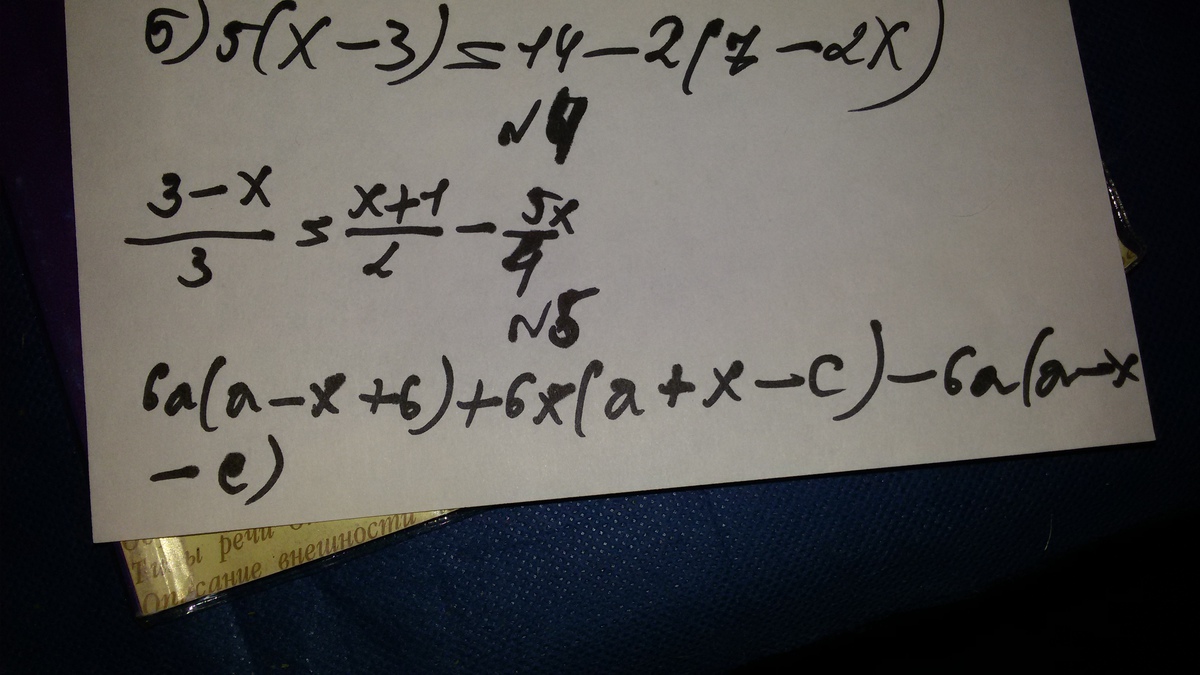 б) 5(x-3)=14-2(7-2x)
№4
3-x/3 = x+1/2 - 5x/4
№5
6a(a-x+6)+6x(a+x-c)-6a(a-x
-c)
Типы речи
Описание внешности